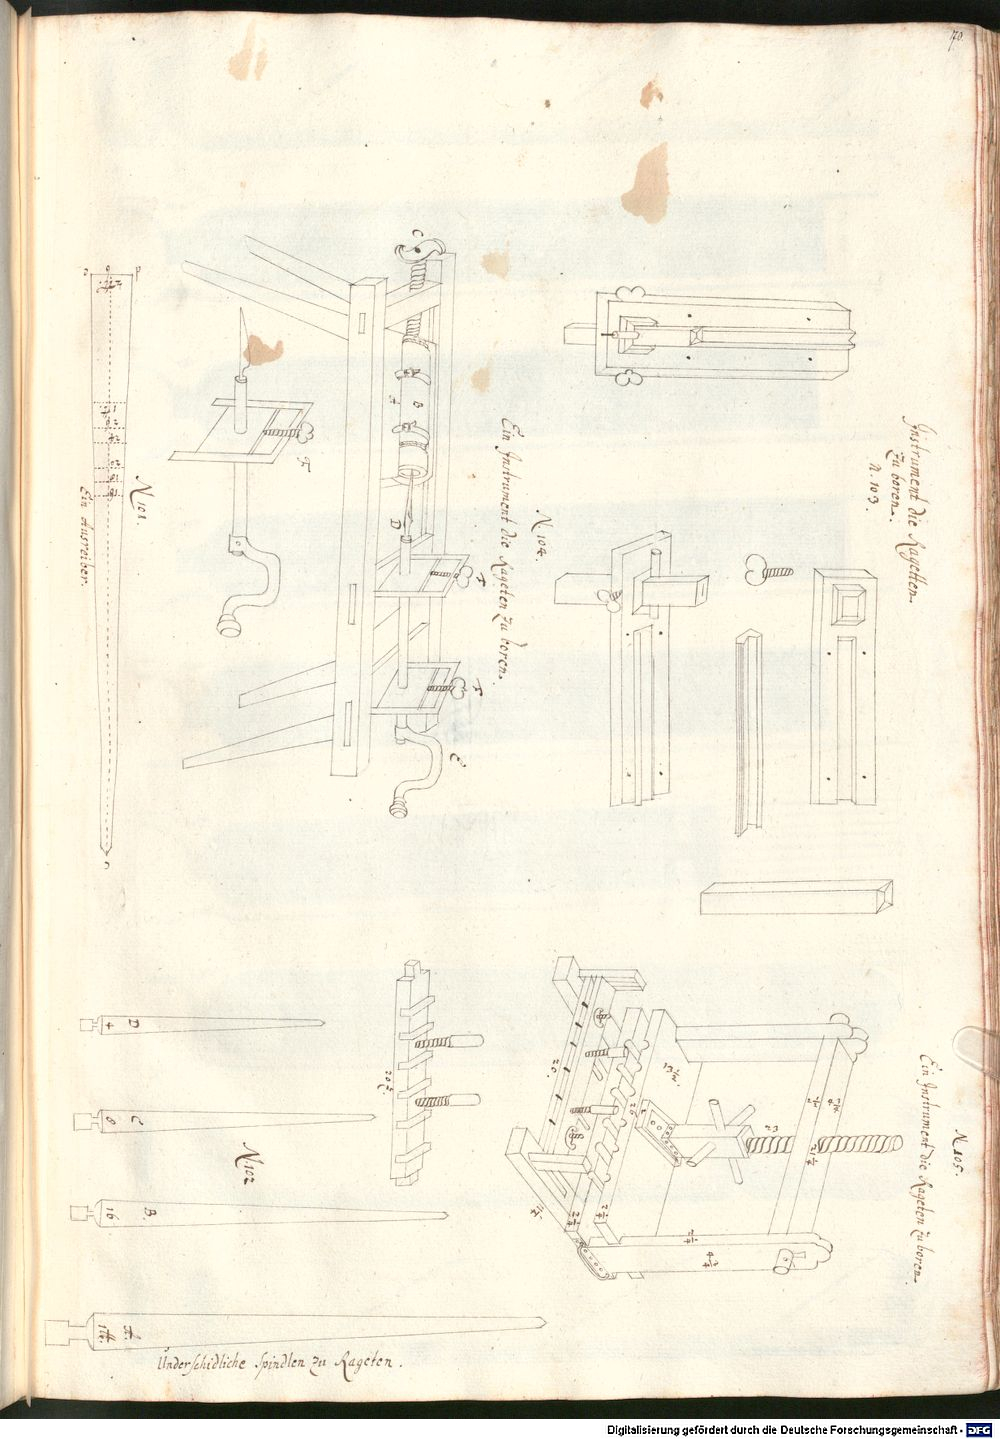 70.
Instrument die Ragetten
Zu boren.
N. 103.
N. 104.
Ein Instrument die Rageten Zu boren.
C
B
A
D
F
F
E
F
N 101.
Ein Ausreiber.
N 105.
Ein Instrument die Rageten Zu boren.
20.
26
23
N. 102
D
4
C
8
B.
16
A.
1 ℔.
Underschidliche Spindlen Zu Rageten.
Digitalisierung gefördert durch die Deutsche Forschungsgemeinschaft - DFG